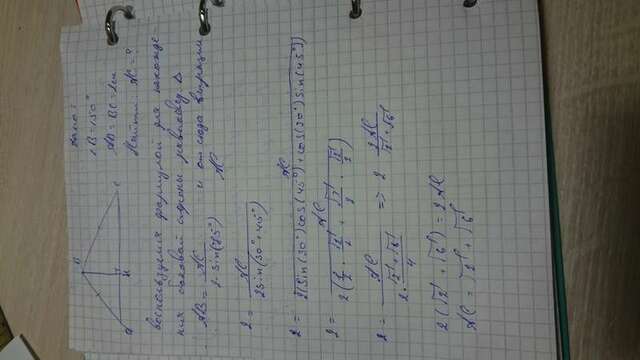 B
A
H
C
Дано:
∠B = 150°
AB = BC = 2см
Найти: AC = ?
воспользуемся формулой для нахожде-
ния боковой стороны равнобед. Δ
AB = AC / 2·sin(75°) и отсюда выразим
AC
2 = AC / 2sin(30°+45°)
2 = AC / 2(sin(30°)cos(45°)+cos(30°)sin(45°))
2 = AC / 2(1/2 · √2/2 + √3/2 · √2/2)
2 = AC / 2·(√2+√6)/4 => 2 2AC / √2+√6
2(√2 + √6) = 2AC
AC = √2 + √6